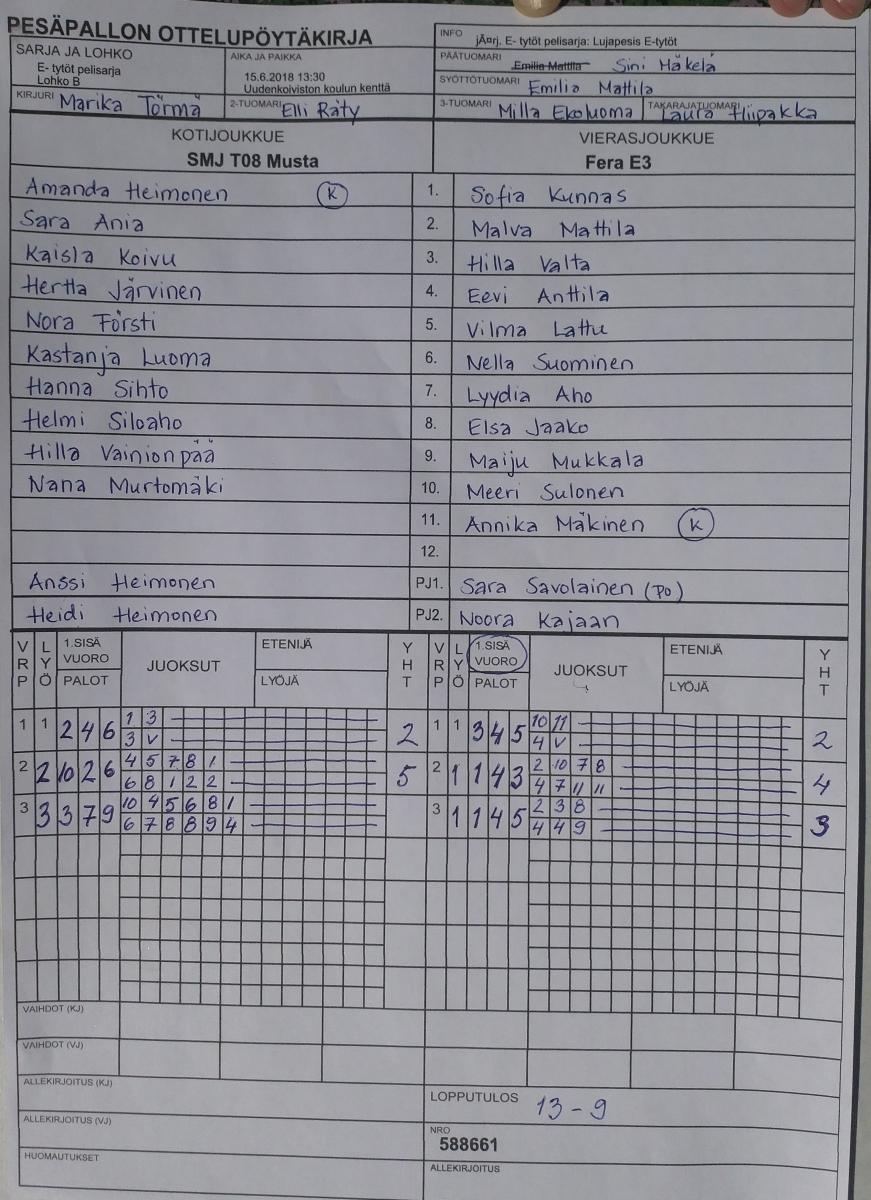 PESÄPALLON OTTELUPÖYTÄKIRJA
INFO jÄ¤rj. E- tytöt pelisarja: Lujapesis E-tytöt
SARJA JA LOHKO
E- tytöt pelisarja
Lohko B
AIKA JA PAIKKA
15.6.2018 13:30
Uudenkoiviston koulun kenttä
PÄÄTUOMARI Emilia Mattila Sini Mäkelä
SYÖTTÖTUOMARI Emilia Mattila
KIRJURI Marika Törmä
2-TUOMARI Elli Räty
3-TUOMARI Milla Ekoluoma
TAKARAJATUOMARI Laura Hiipakka
KOTIJOUKKUE
SMJ T08 Musta
VIERASJOUKKUE
Fera E3
Amanda Heimonen K 1. Sofia Kunnas
Sara Ania 2. Malva Mattila
Kaisla Koivu 3. Hilla Valta
Hertta Järvinen 4. Eevi Anttila
Nora Försti 5. Vilma Lattu
Kastanja Luoma 6. Nella Suominen
Hanna Sihto 7. Lyydia Aho
Helmi Siloaho 8. Elsa Jaako
Hilla Vainionpää 9. Maiju Mukkala
Nana Murtomäki 10. Meeri Sulonen
11. Annika Mäkinen K
12.
Anssi Heimonen PJ1. Sara Savolainen (PO)
Heidi Heimonen PJ2. Noora Kajaan
VRP LYÖ 1.SISÄ VUORO PALOT JUOKSUT ETENIJÄ LYÖJÄ YHT VRP LYÖ 1.SISÄ VUORO PALOT JUOKSUT ETENIJÄ LYÖJÄ YHT
1 1 2 4 6 1 3 2 1 1 3 4 5 10 11 2
3 V 4 V
2 2 10 2 6 4 5 7 8 1 5 2 1 1 4 3 2 10 7 8 4
6 8 1 2 2 4 7 11 11
3 3 3 7 9 10 4 5 6 8 1 3 1 1 4 5 2 3 8 3
6 7 8 8 9 4 4 4 9
VAIHDOT (KJ)
VAIHDOT (VJ)
ALLEKIRJOITUS (KJ)
LOPPUTULOS 13 - 9
ALLEKIRJOITUS (VJ)
NRO
588661
HUOMAUTUKSET
ALLEKIRJOITUS